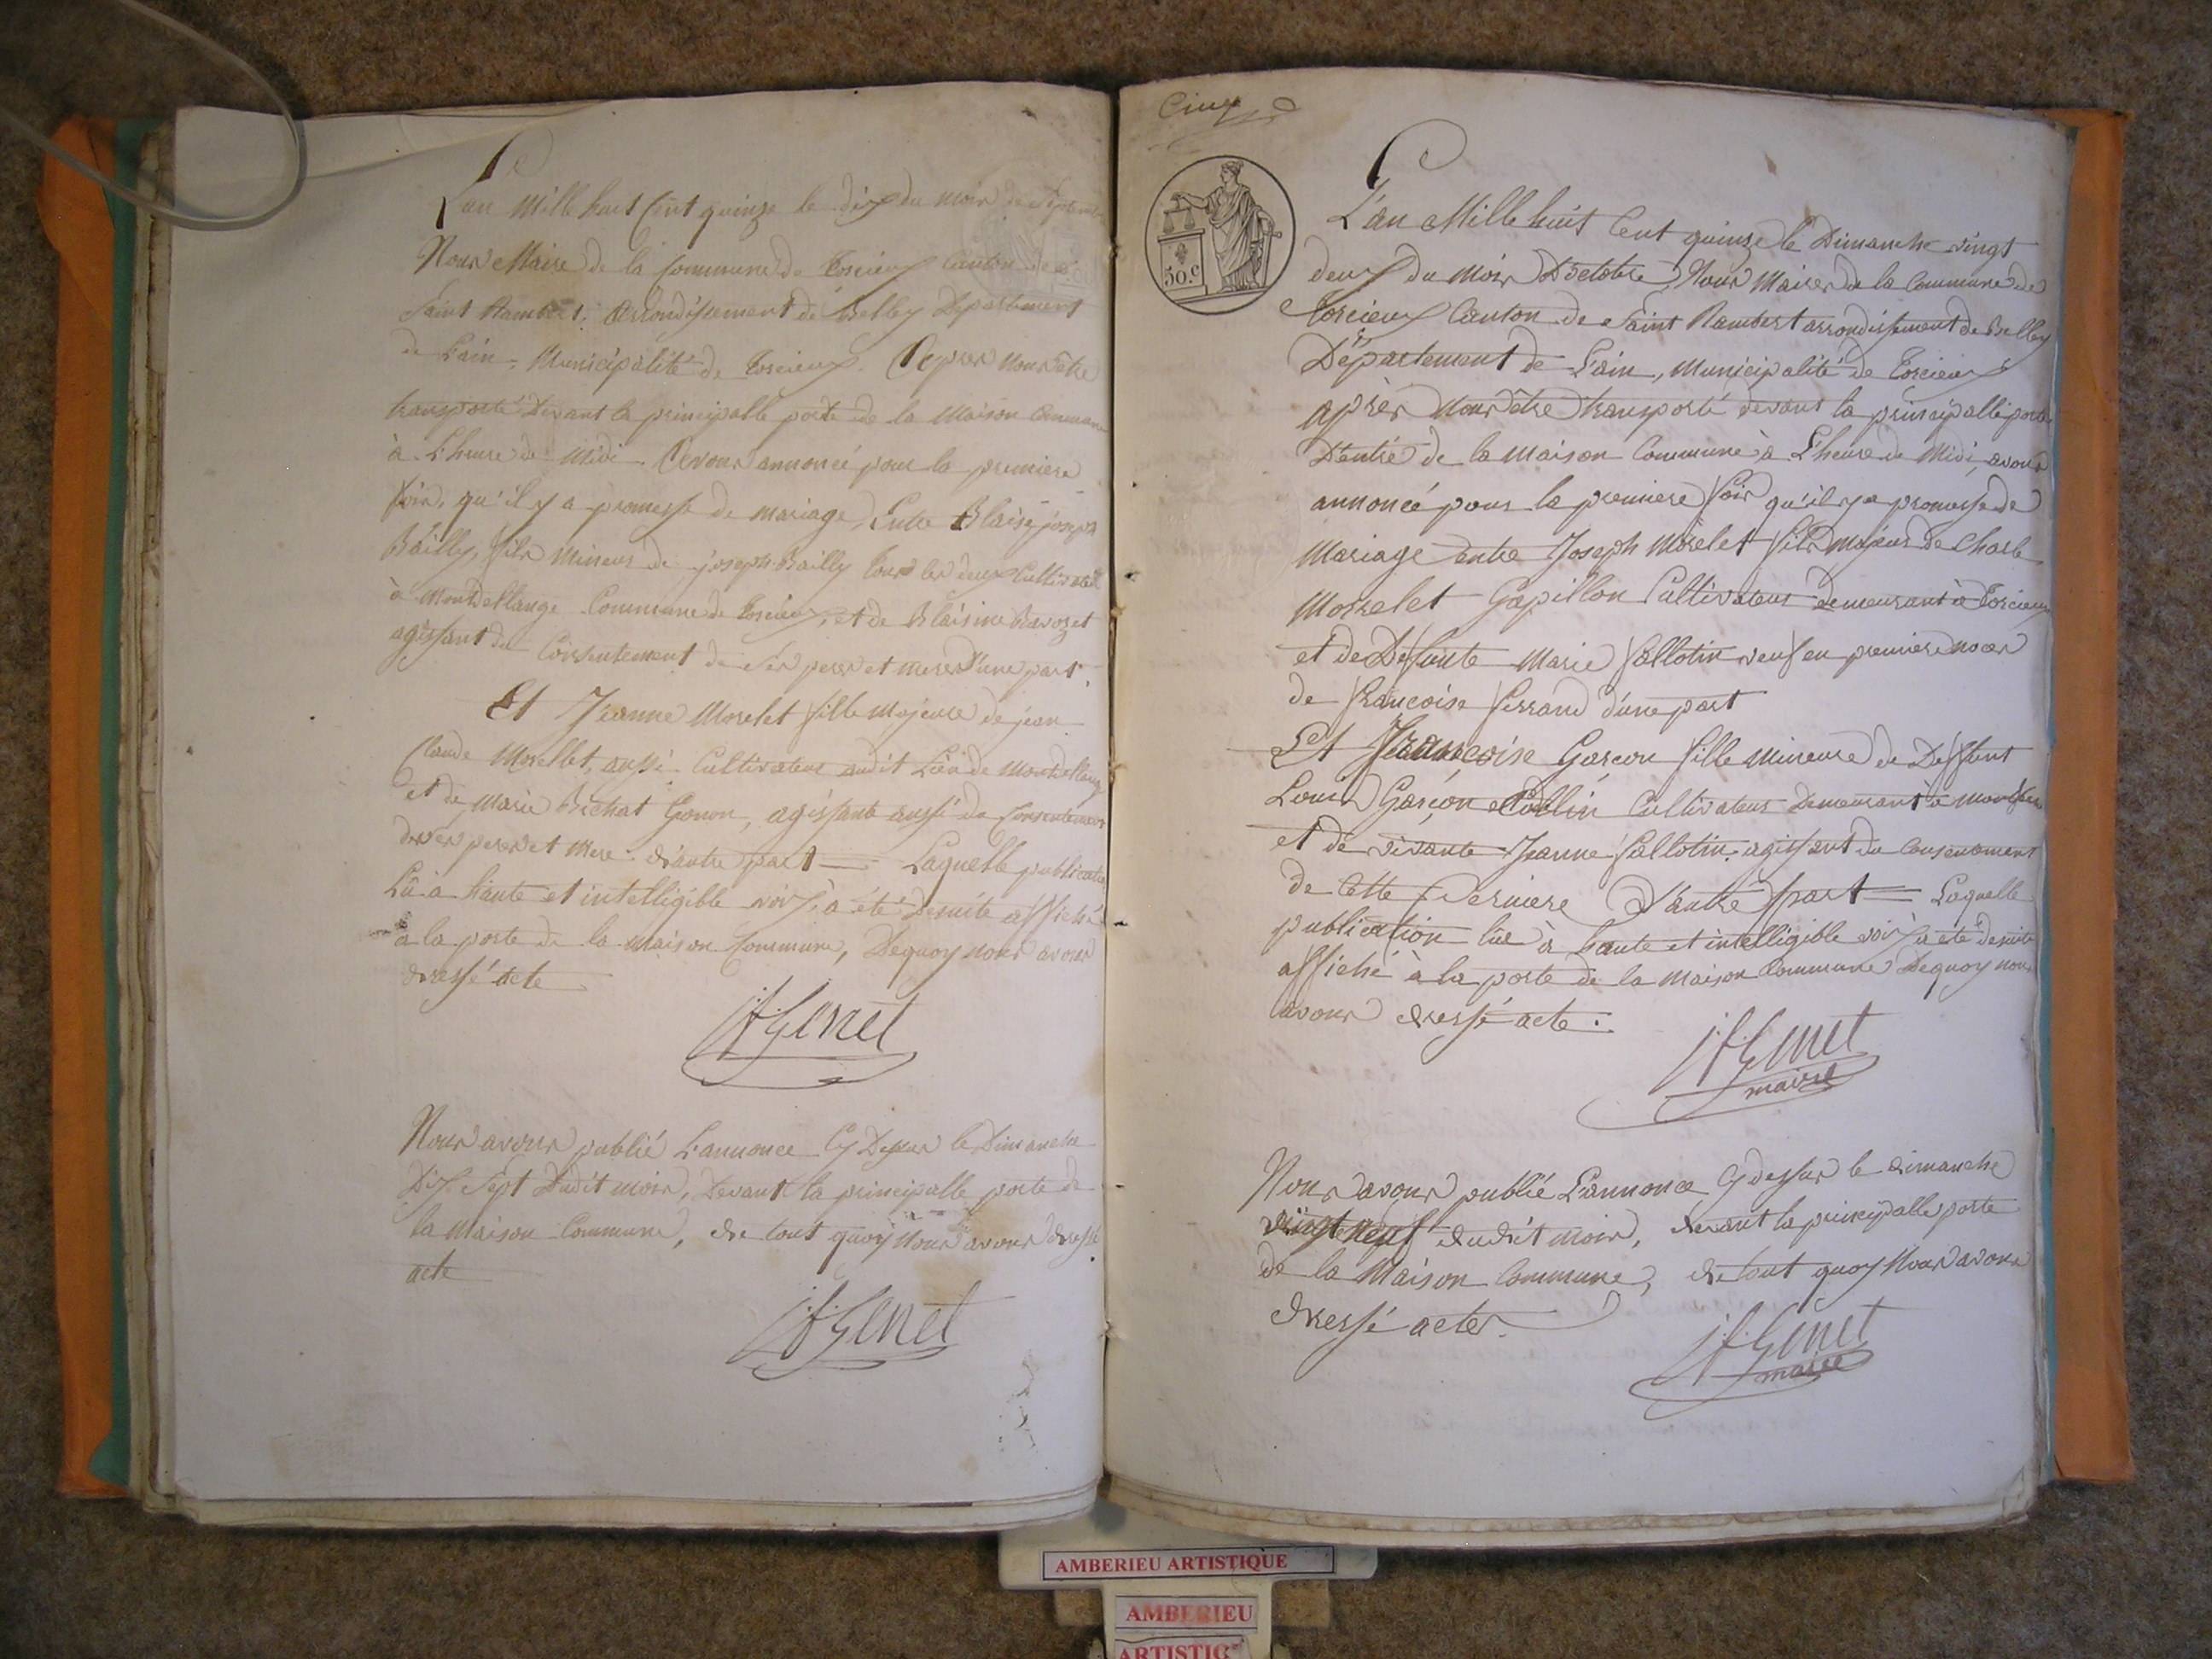 L'an Mille huit Cent quinze le dix du mois de Septembre
Nous Maire de la Commune de Torcieux Canton de
Saint Rambert, Arrondissement de Belley Departement
de L'ain, Municipalité de Torcieux. Après Nous être
transporté Devant la principalle porte de la Maison Commune
à L'heure de Midi. Avons annoncé pour la premiere
fois, qu'il y a promesse de mariage, Entre Blaise joseph
Bailly, fils Mineur de joseph Bailly tous les deux Cultivateurs
à Montdellange Commune de Torcieux, et de Blaisine Ravozet
agissant du Consentement de ses peres et meres D'une part.
Et Jeanne Morelet fille Majeure de jean
Claude Morellet, aussi Cultivateur audit Lieu de Montdellange
et de Marie Bichat Gonon, agissante aussi du Consentement
de ses peres et Mere. d'autre part — Laquelle publication
Lû à haute et intelligible voix, à été Desuite affiché
à la porte de la Maison Commune, Dequoy nous avons
dressé acte
J F Genet
Nous avons publié L'annonce Cy Dessus le Dimanche
Dix Sept Dudit mois, Devant la principalle porte de
la Maison Commune, de tout quoy Nous avons dressé
acte
J F Genet
Cinq
50.c
L'an Mille huit Cent quinze le Dimanche vingt
deux du Mois D'octobre, Nous Maire de la Commune de
Torcieux Canton de Saint Rambert arrondissement de Belley
Département de L'ain, Municipalité de Torcieux
après Nous être transporté devant la principalle porte
D'entré de la Maison Commune à L'heure de Midi, avons
annoncé pour la premiere fois qu'il y a promesse de
Mariage entre Joseph Morelet fils majeur de Charle
Morrelet Gapillon Cultivateur demeurant à Torcieux
et de Deffunte Marie Sallotin veuf en premiere noces
de francoise ferrand d'une part
Et Françoise Garcon fille Mineure de Deffunt
Louis Garçon Collin Cultivateur Demeurant à
et de vivante Jeanne Sallotin, agissant du Consentement
de Cette Derniere D'autre part — Laquelle
publication lüe à haute et intelligible voix à été desuite
affiché à la porte de la Maison Commune Dequoy nous
avons dressé acte.
J F Genet
maire
Nous avons publié L'annonce Cy dessus le dimanche
vingt neuf dudit mois, devant la principalle porte
de la Maison Commune, de tout quoy Nous avons
dressé actes.
J F Genet
maire
AMBERIEU ARTISTIQUE
AMBERIEU
ARTISTIQ